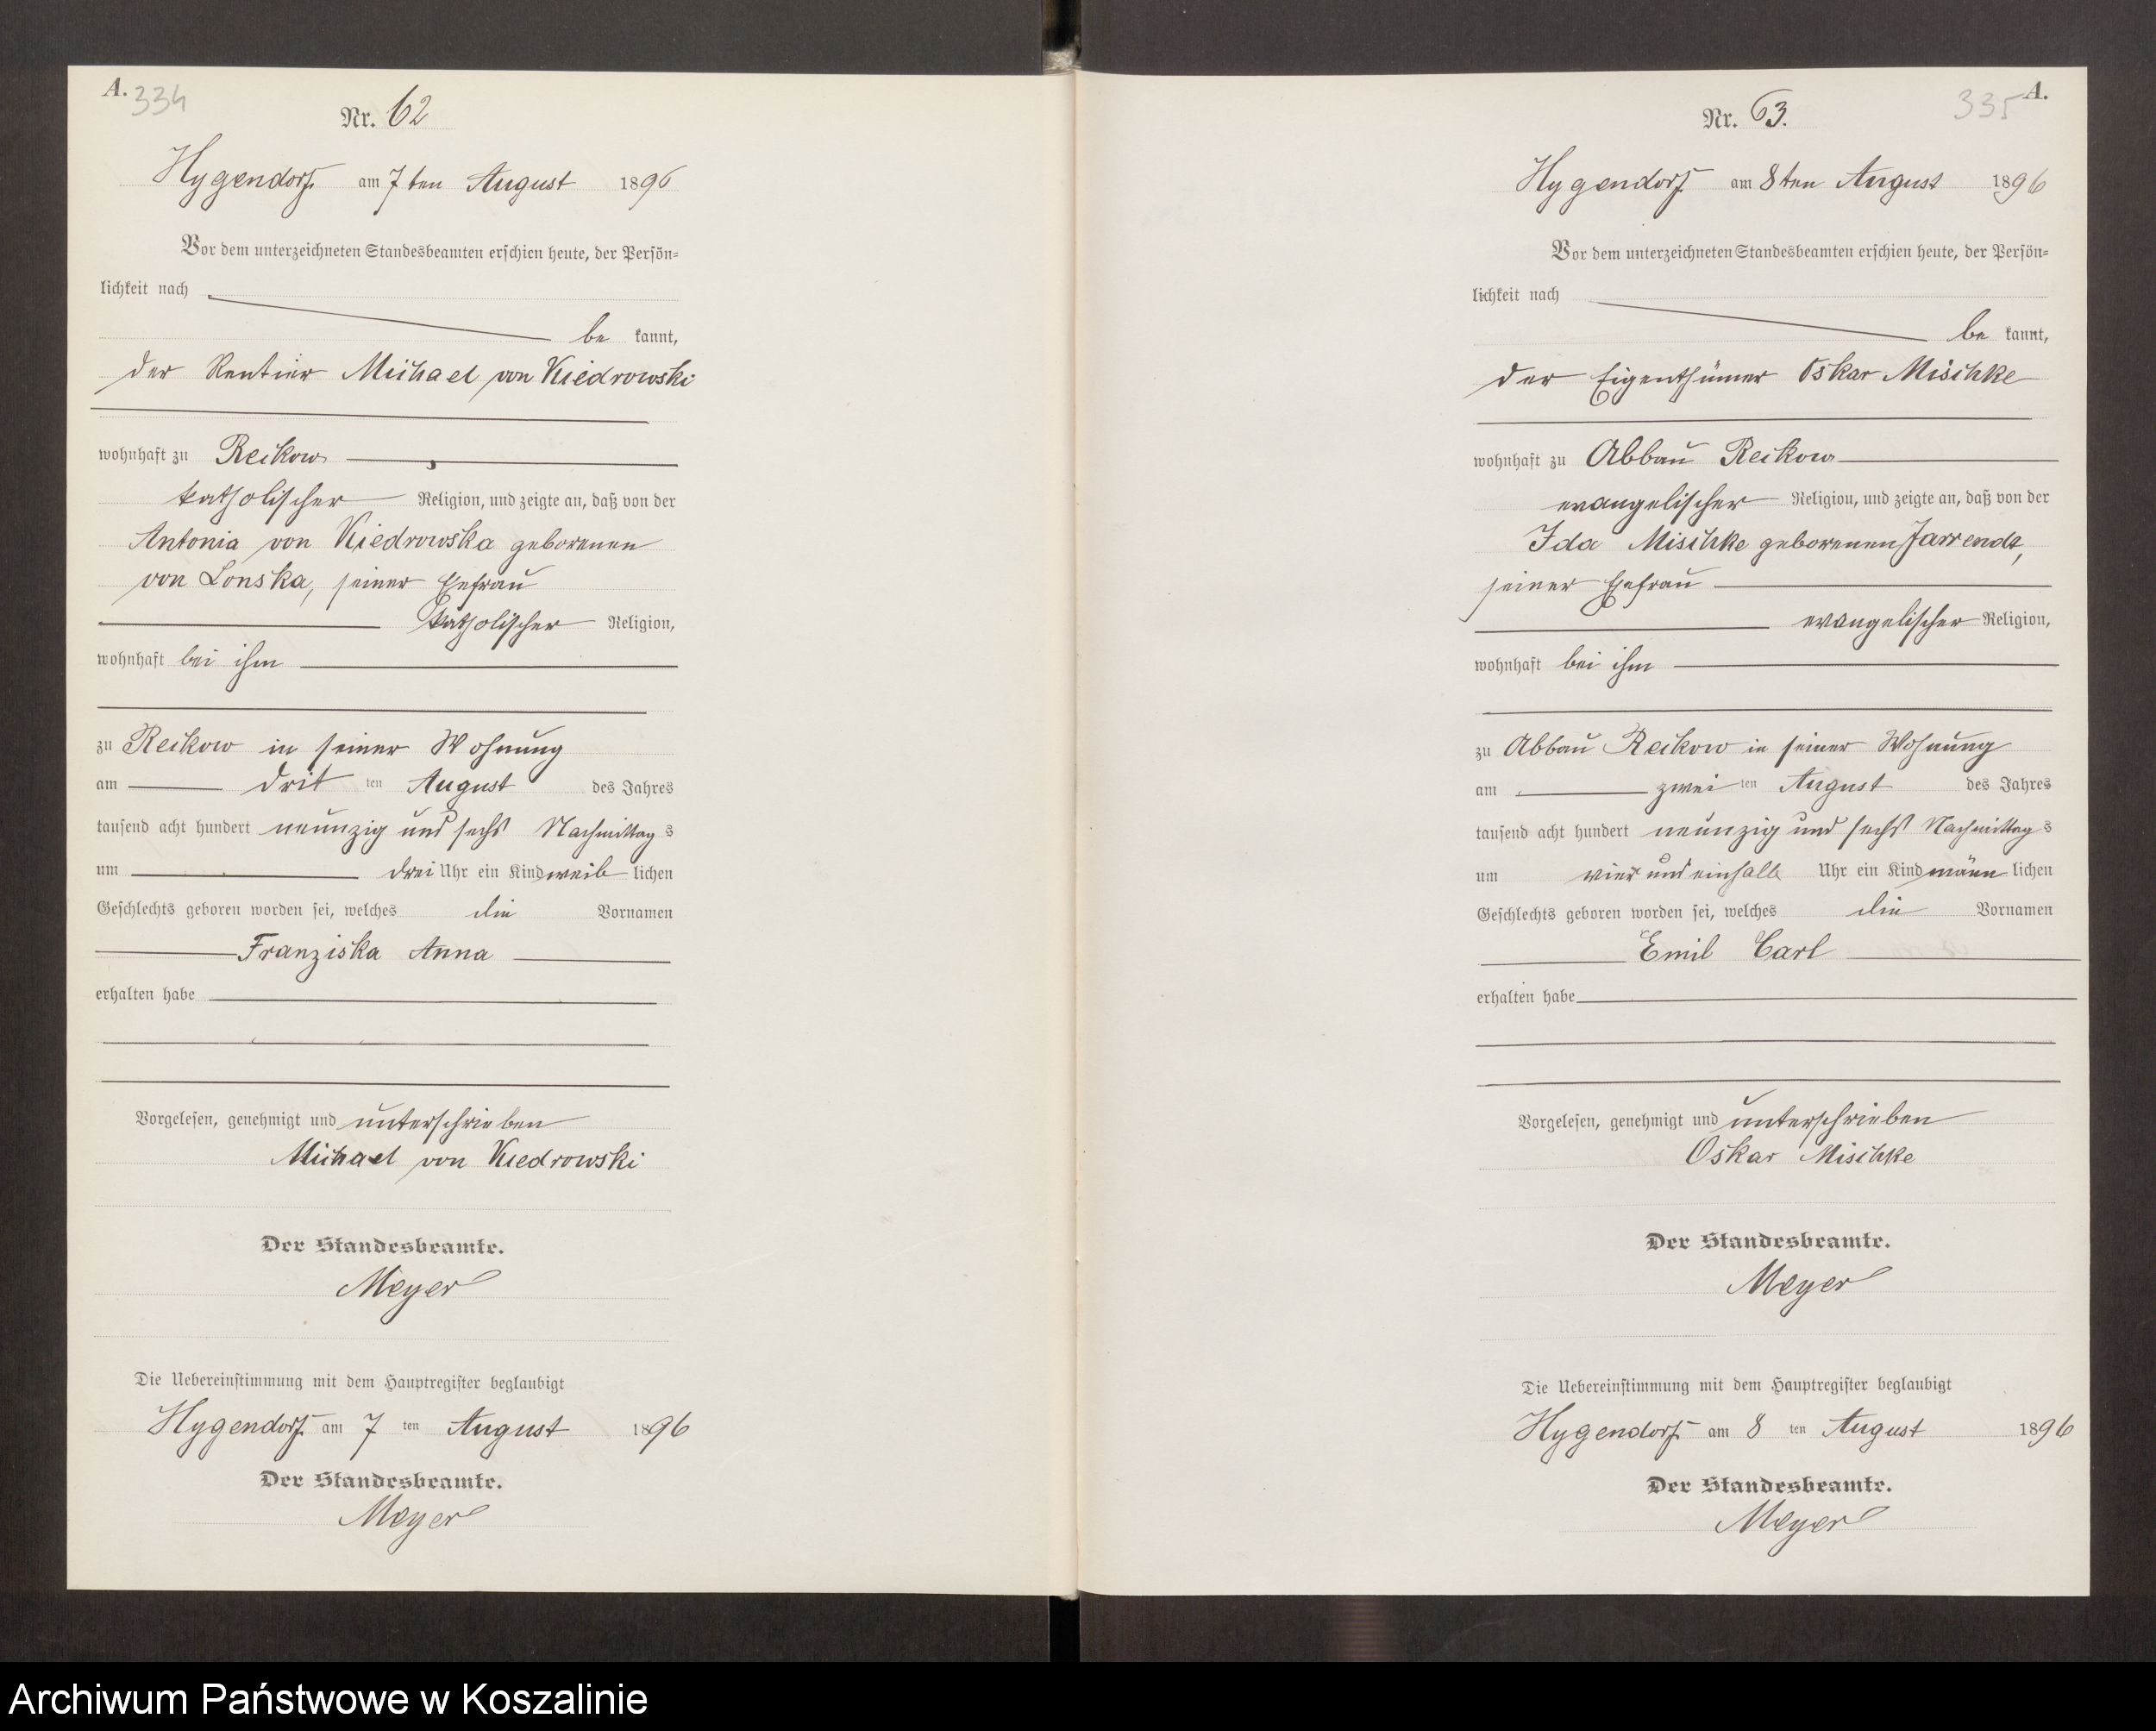 A. 334
Nr. 62
Hygendorf am 7ten August 1896
Vor dem unterzeichneten Standesbeamten erschien heute, der Persön-
lichkeit nach
be kannt,
der Rentier Michael von Kiedrowski
wohnhaft zu Reckow
katholischer Religion, und zeigte an, daß von der
Antonia von Kiedrowska geborenen
von Lonska, seiner Ehefrau
katholischer Religion,
wohnhaft bei ihm
zu Reckow in seiner Wohnung
am drit ten August des Jahres
tausend acht hundert neunzig und sechs Nachmittag s
um drei Uhr ein Kind weib lichen
Geschlechts geboren worden sei, welches die Vornamen
Franziska Anna
erhalten habe
Vorgelesen, genehmigt und unterschrieben
Michael von Kiedrowski
Der Standesbeamte.
Meyer
Die Uebereinstimmung mit dem Hauptregister beglaubigt
Hygendorf am 7 ten August 1896
Der Standesbeamte.
Meyer
335 A.
Nr. 63.
Hygendorf am 8ten August 1896
Vor dem unterzeichneten Standesbeamten erschien heute, der Persön-
lichkeit nach
be kannt,
der Eigenthümer Oskar Mischke
wohnhaft zu Abbau Reckow
evangelischer Religion, und zeigte an, daß von der
Ida Mischke geborenen
seiner Ehefrau
evangelischer Religion,
wohnhaft bei ihm
zu Abbau Reckow in seiner Wohnung
am zwei ten August des Jahres
tausend acht hundert neunzig und sechs Nachmittag s
um vier und einhalb Uhr ein Kind männ lichen
Geschlechts geboren worden sei, welches die Vornamen
Emil Carl
erhalten habe
Vorgelesen, genehmigt und unterschrieben
Oskar Mischke
Der Standesbeamte.
Meyer
Die Uebereinstimmung mit dem Hauptregister beglaubigt
Hygendorf am 8 ten August 1896
Der Standesbeamte.
Meyer
Archiwum Państwowe w Koszalinie